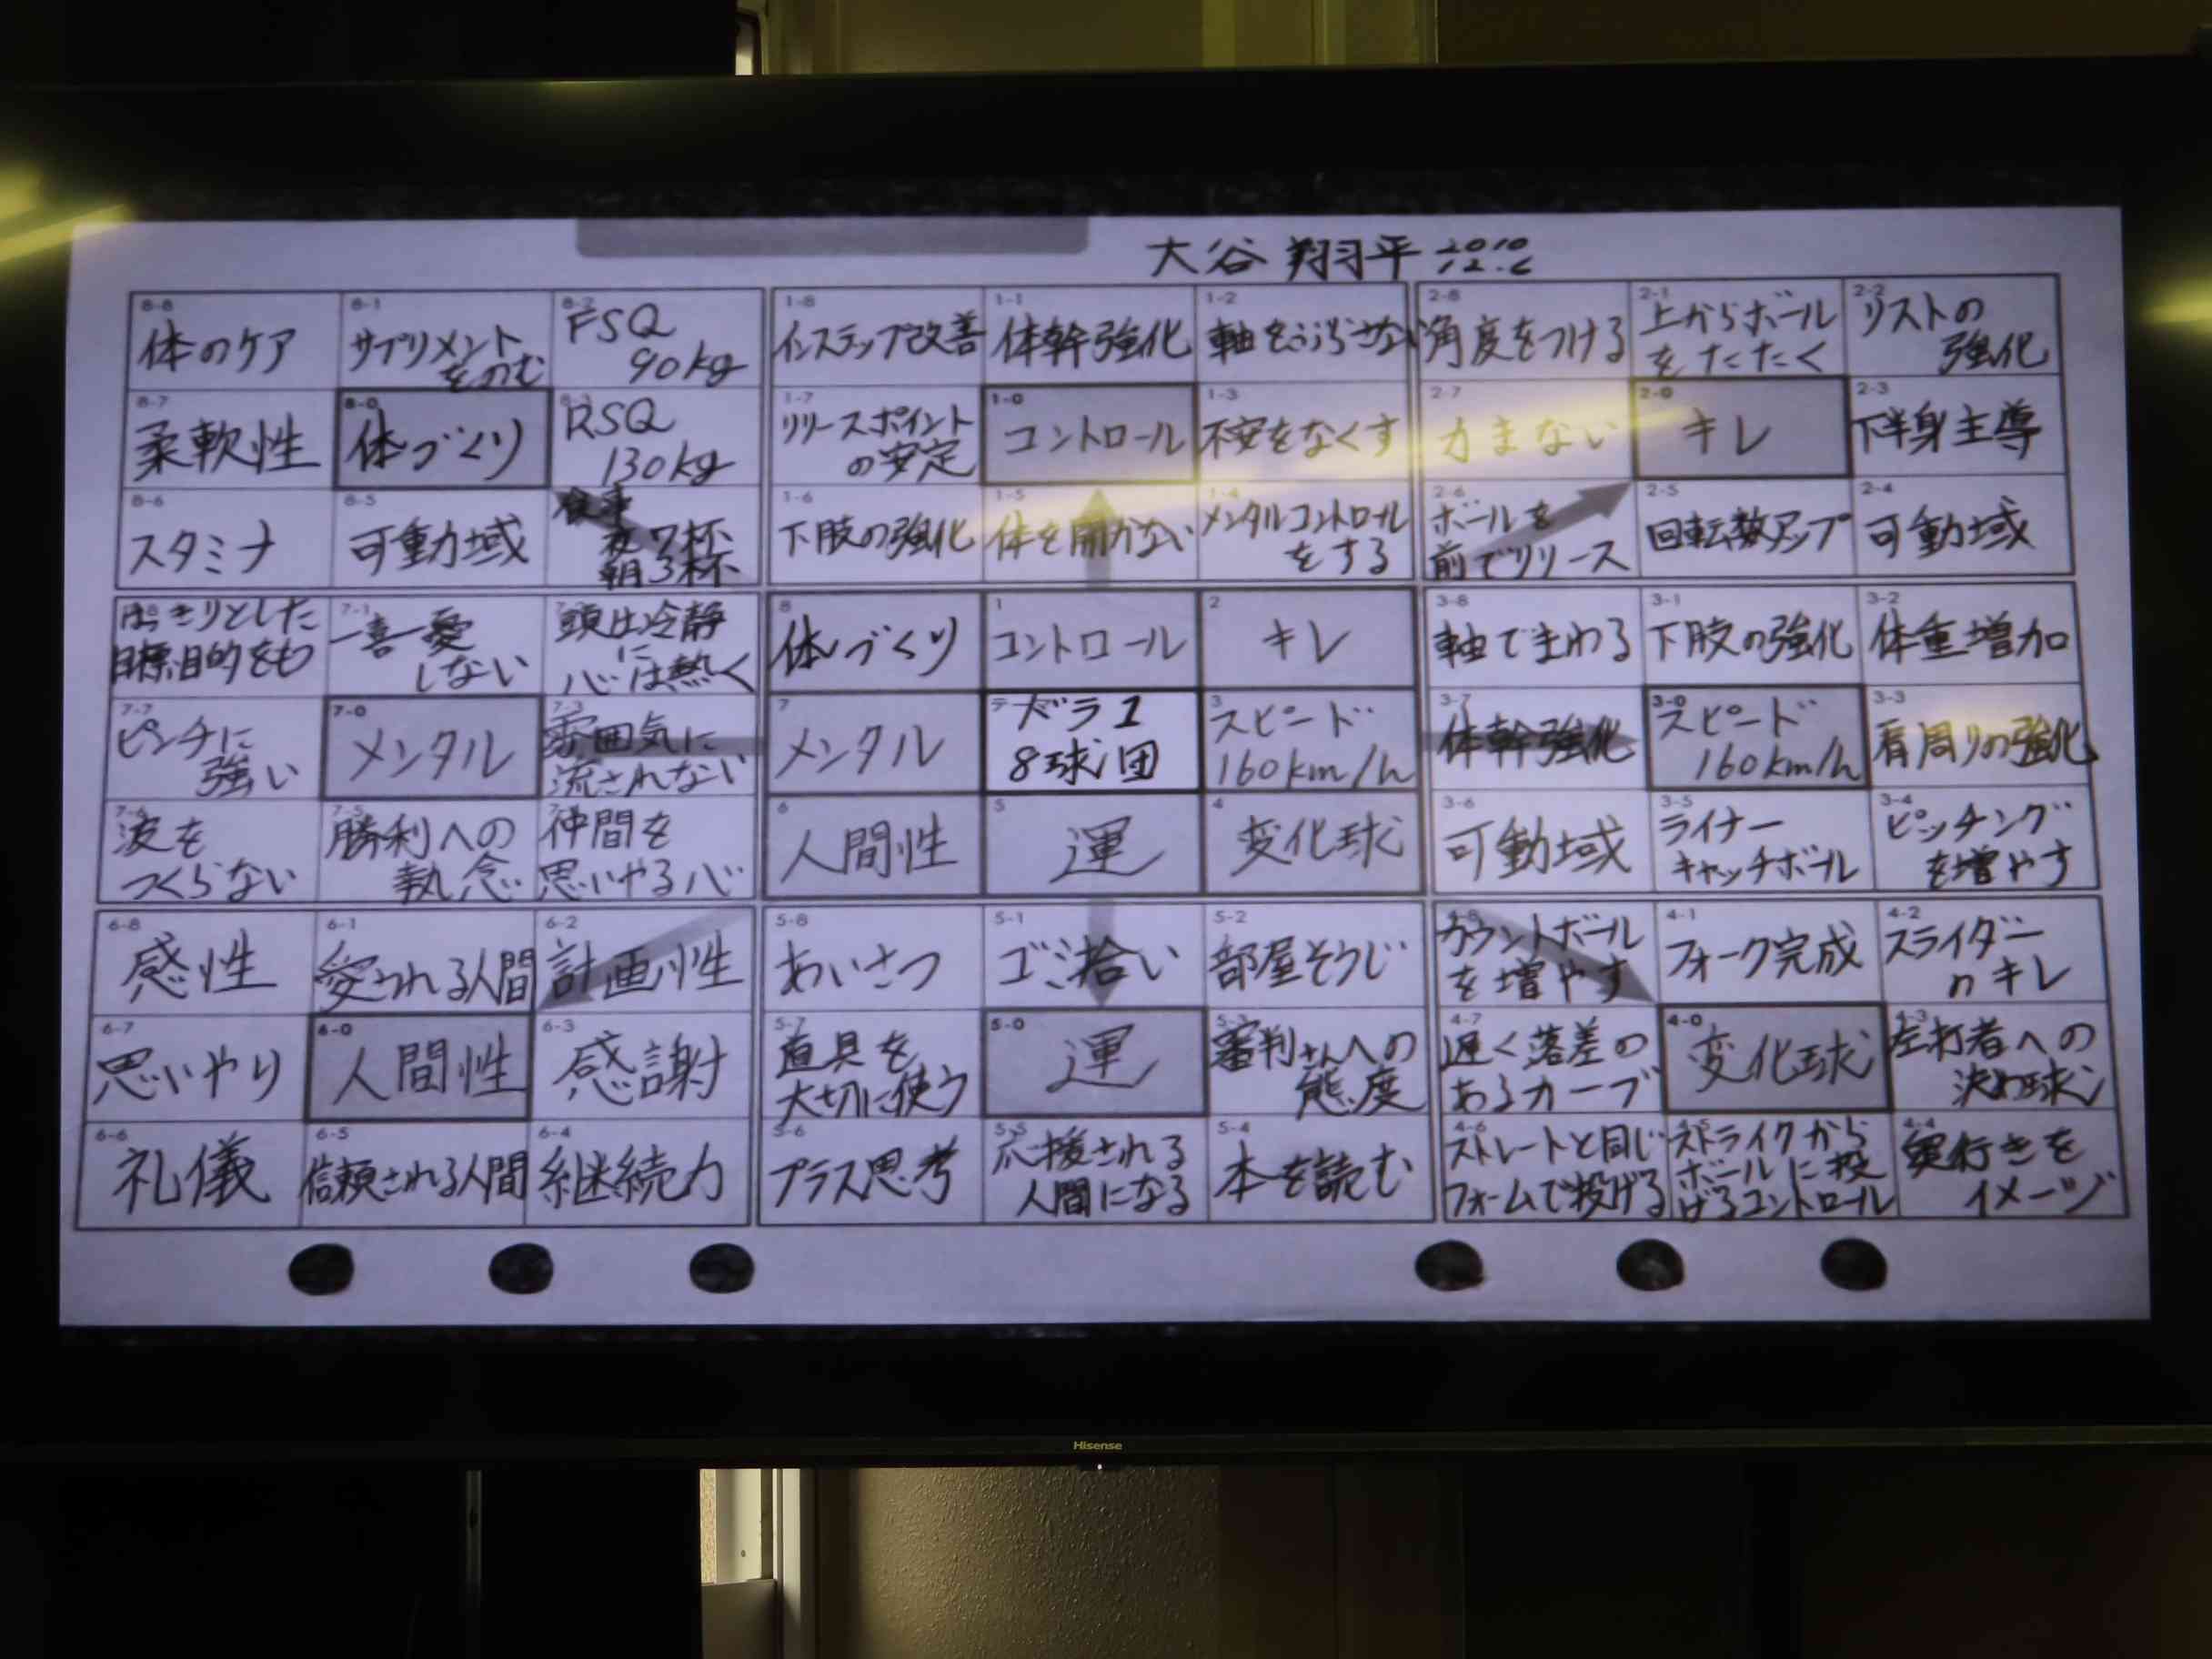 大谷 翔平 2010 12.6
8-8 体のケア
8-1 サプリメントをのむ
8-2 FSQ 90kg
1-8 インステップ改善
1-1 体幹強化
1-2 軸をぶらさない
2-8 角度をつける
2-1 上からボールをたたく
2-2 リストの強化
8-7 柔軟性
8-0 体づくり
8-3 RSQ 130kg
1-7 リリースポイントの安定
1-0 コントロール
1-3 不安をなくす
2-7 力まない
2-0 キレ
2-3 下半身主導
8-6 スタミナ
8-5 可動域
食事 夜7杯 朝3杯
1-6 下肢の強化
1-5 体を開かない
1-4 メンタルコントロールをする
2-6 ボールを前でリリース
2-5 回転数アップ
2-4 可動域
はっきりとした目標、目的をもつ
7-1 一喜一憂しない
頭は冷静に心は熱く
8 体づくり
1 コントロール
2 キレ
3-8 軸でまわる
3-1 下肢の強化
3-2 体重増加
7-7 ピンチに強い
7-0 メンタル
7-3 雰囲気に流されない
7 メンタル
ドラ1 8球団
3 スピード 160km/h
3-7 体幹強化
3-0 スピード 160km/h
3-3 肩周りの強化
7-6 波をつくらない
7-5 勝利への執念
仲間を思いやる心
6 人間性
5 運
4 変化球
3-6 可動域
3-5 ライナーキャッチボール
3-4 ピッチングを増やす
6-8 感性
6-1 愛される人間
6-2 計画性
5-8 あいさつ
5-1 ゴミ拾い
5-2 部屋そうじ
4-8 カウントボールを増やす
4-1 フォーク完成
4-2 スライダーのキレ
6-7 思いやり
6-0 人間性
6-3 感謝
5-7 道具を大切に使う
5-0 運
5-3 審判さんへの態度
4-7 遅く落差のあるカーブ
4-0 変化球
4-3 左打者への決め球
6-6 礼儀
6-5 信頼される人間
6-4 継続力
5-6 プラス思考
5-5 応援される人間になる
5-4 本を読む
4-6 ストレートと同じフォームで投げる
ストライクからボールに投げるコントロール
4-4 奥行きをイメージ
Hisense